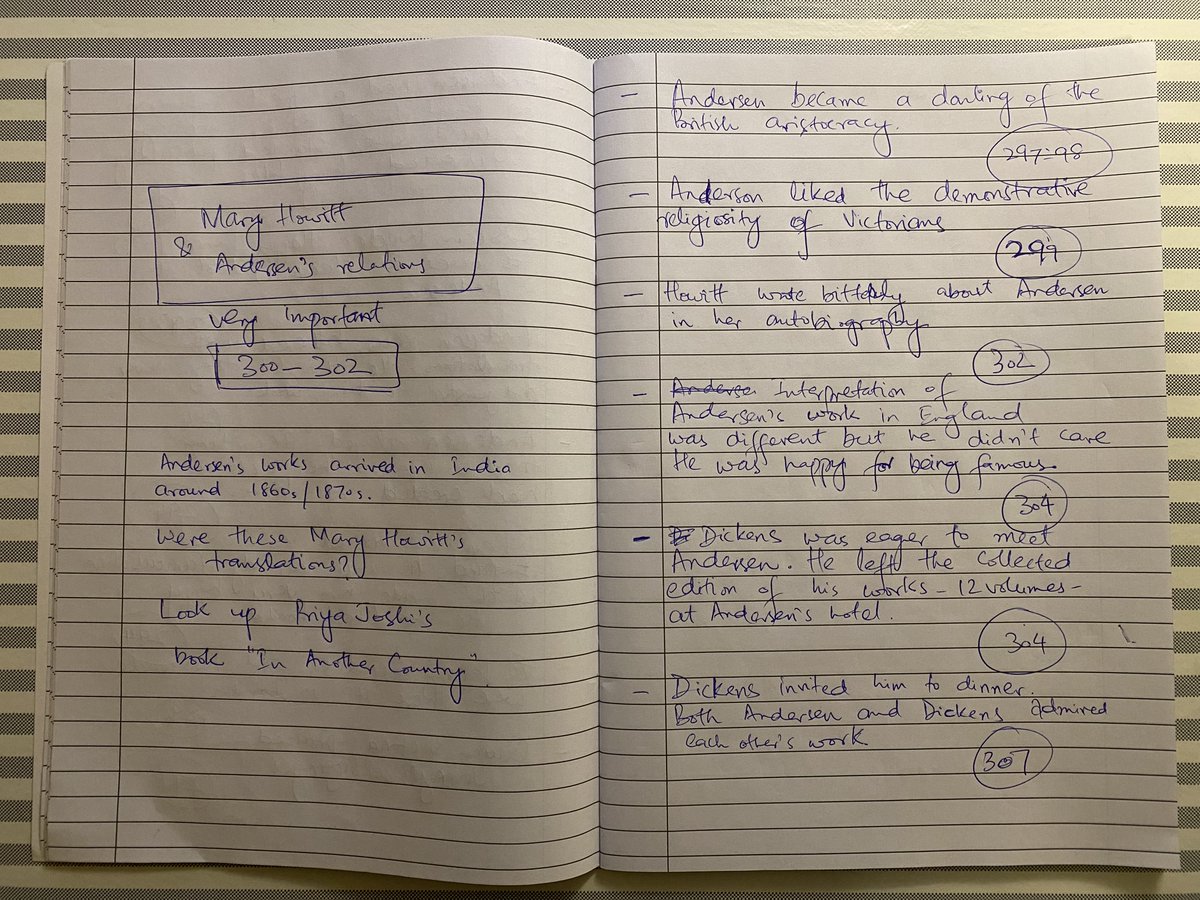 Mary Howitt
&
Andersen's relations
very important
300 - 302
Andersen's works arrived in India
around 1860s/1870s.
Were these Mary Howitt's
translations?
Look up Priya Joshi's
book "In Another Country"
- Andersen became a darling of the
British aristocracy.
297-98
- Anderson liked the demonstrative
religiosity of Victorians
299
- Howitt wrote bitterly about Andersen
in her autobiography
302
- Anderse Interpretation of
Andersen's work in England
was different but he didn't care
He was happy for being famous.
304
- Dickens was eager to meet
Andersen. He left the collected
edition of his works - 12 volumes -
at Andersen's hotel.
304
- Dickens invited him to dinner.
Both Andersen and Dickens admired
each other's work
307